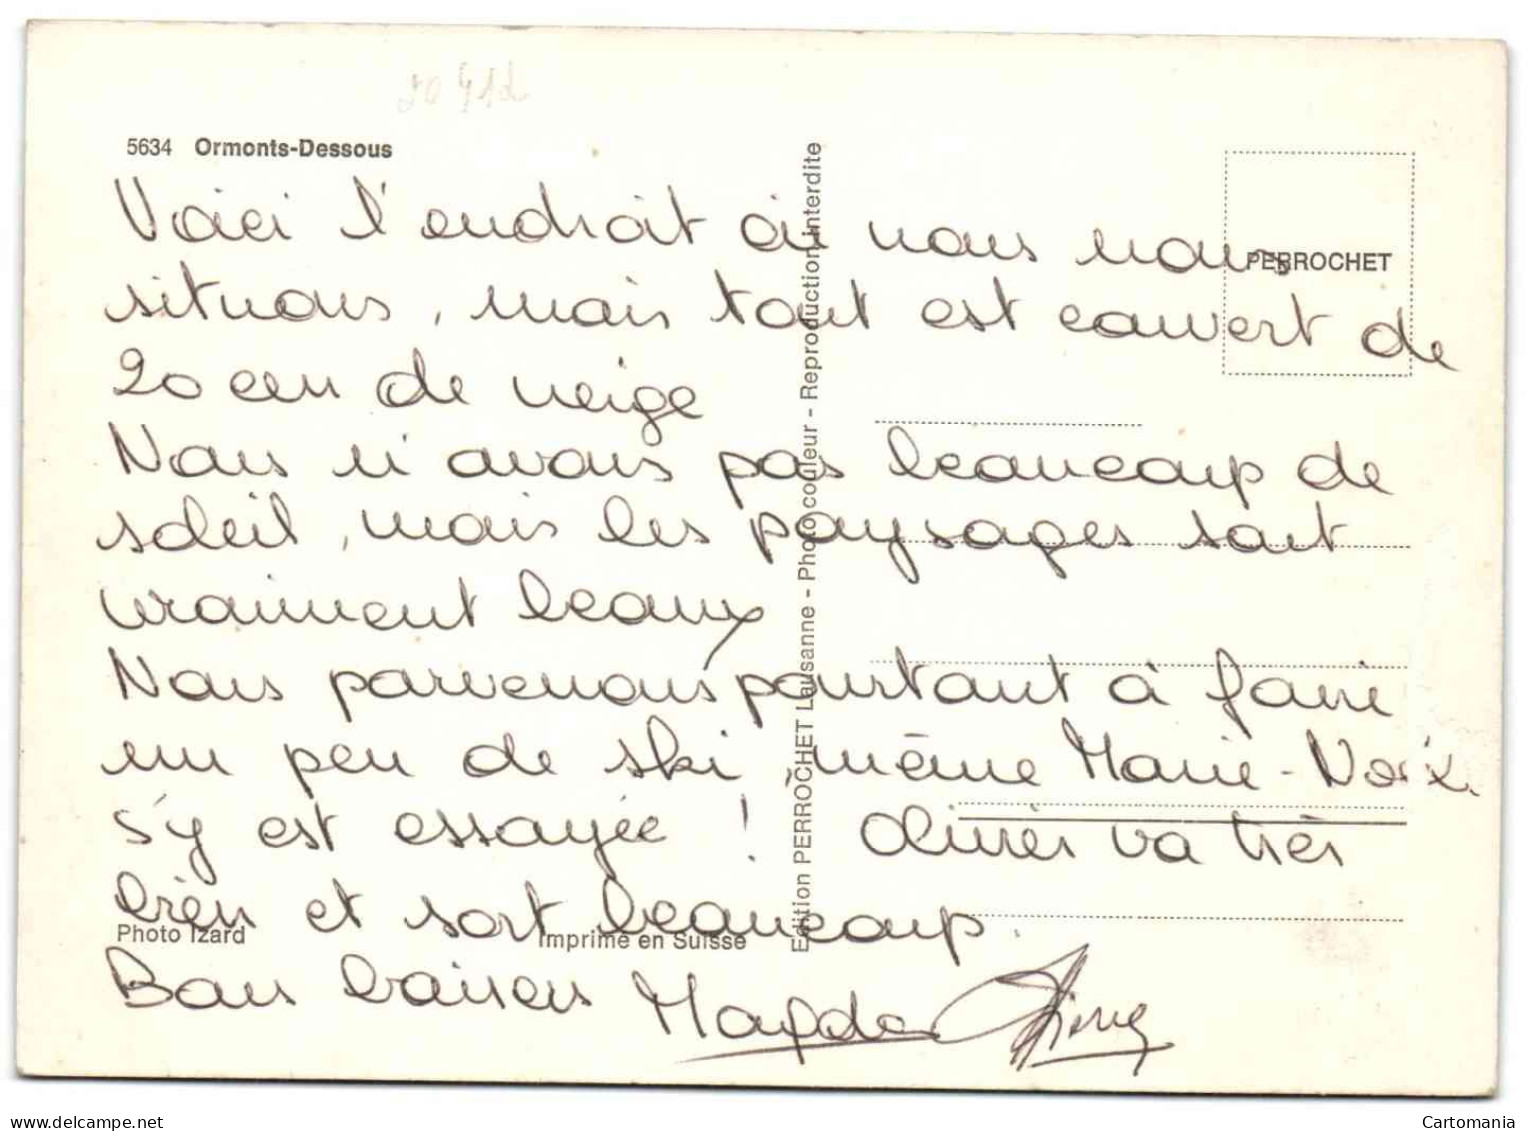 5634 Ormonts-Dessous
PERROCHET
Voici l'endroit où nous nous
situons, mais tout est couvert de
20 cm de neige
Nous n'avons pas beaucoup de
soleil, mais les paysages sont
vraiment beaux
Nous parvenons pourtant à faire
un peu de ski, même Marie-Noël
s'y est essayée ! Olivier va très
bien et sort beaucoup.
Bons baisers Magda Pierre
Photo Izard
Imprimé en Suisse
Edition PERROCHET Lausanne - Photo couleur - Reproduction interdite
delcampe.net
Cartomania